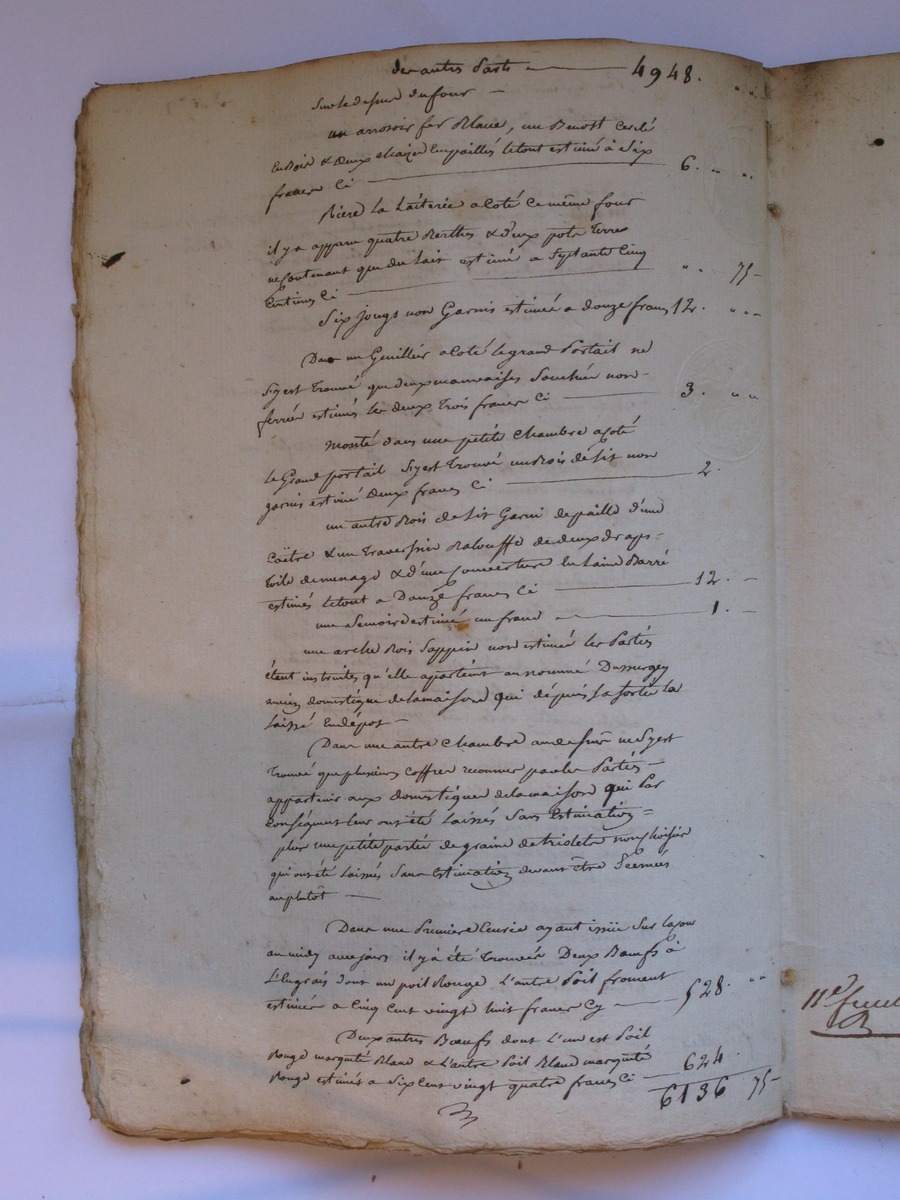 des autres parts 4948. " "
Sur le dessus du four —
un arrosoir fer Blanc, un Benost Cerclé
En Bois & deux chaizes Empaillés le tout estimé à Six
francs Ci 6. " "
Riere la Laiterie a Coté Ce même four
il y a apparu quatre Berthes & deux pots terre
ne Contenant que du lait estimé a Septante Cinq
Centimes Ci " " 75
Six jougs non Garnis estimés a douze francs 12. " "
Dans un a Coté le grand Portail ne
S'y est Trouvé que deux mauvaises non
ferrées estimés les deux Trois francs Ci 3. " "
Monté dans une petite Chambre a Coté
le Grand portail S'y est Trouvé un Bois de Lit non
garni estimé deux francs Ci 2.
un autre Bois de Lit Garni de paille d'une
& un Traversier Balouffe de deux draps =
Toile de menage & d'une Couverture En Laine Barré
estimés le tout a Douze francs Ci 12. —
une Semoire estimé un franc 1. —
une arche Bois Sappin non estimée les Parties
étant instruites qu'elle apartient au nommé Dussurgey
ancien domestique de la maison qui depuis sa Sortie la
Laissé En dépot —
Dans une autre Chambre au dessus ne S'y est
Trouvé que plusieurs Coffres reconnus par les Parties —
appartenir aux domestiques de la maison qui Par
Conséquent leur ont été Laissés Sans Estimation =
plus une petite partie de graine de triolets non
qui ont été Laissés Sans Estimation devant être Semés
au plutôt —
Dans une Première Ecurie ayant issüe Sur la Cour
au midy avec jours il y a été Trouvés Deux Bœufs à
L'Engrais dont un poil Rouge L'autre Poil froment
estimés a Cinq Cent vingt huit francs Cy 528. " "
Deux autres Bœufs dont L'un est Poil
Rouge marqueté Blanc & L'autre Poil Blanc marqueté
Rouge estimés a Six Cent vingt quatre francs Ci 624.
6136 75
11e